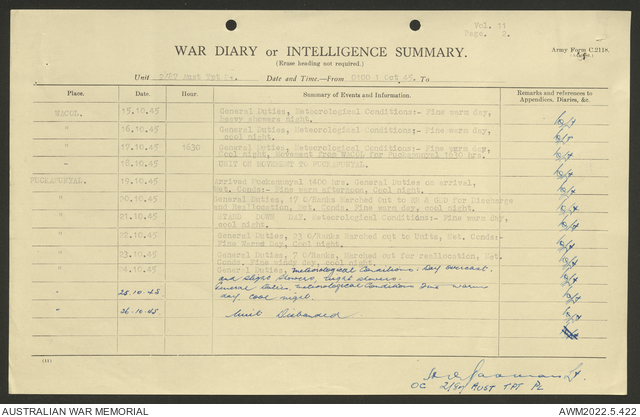 Vol. 11
Page. 2.
WAR DIARY or INTELLIGENCE SUMMARY.
(Erase heading not required.)
Army Form C.2118.
Unit 2/87 Aust Tpt Date and Time.—From 0100 1 Oct 45. To
Place. Date. Hour. Summary of Events and Information. Remarks and references to Appendices, Diaries, &c.
WACOL. 15.10.45 General Duties, Meteorological Conditions:- Fine warm day, heavy showers night.
" 16.10.45 General Duties, Meteorological Conditions:- Fine warm day, cool night.
" 17.10.45 1630 General Duties, Meteorological Conditions:- Fine warm day, Cool night. Movement from WACOL for Puckapunyal 1630 hrs.
- 18.10.45 UNIT ON MOVEMENT TO PUCKAPUNYAL.
PUCKAPUNYAL. 19.10.45 Arrived Puckapunyal 1400 hrs. General Duties on arrival, Met. Conds:- Fine warm afternoon, Cool night.
" 20.10.45 General Duties, 17 O/Ranks Marched Out to for Discharge and Reallocation, Met. Conds. Fine warm day, cool night.
" 21.10.45 STAND DOWN DAY. Meteorological Conditions:- Fine warm day, cool night.
" 22.10.45 General Duties, 23 O/Ranks Marched out to Units, Met. Conds:- Fine Warm Day, Cool night.
" 23.10.45 General Duties, 7 O/Ranks Marched out for reallocation, Met. Conds. Fine windy day, cool night.
" 24.10.45 General Duties, meteorological Conditions: Day overcast and slight showers, night showers.
" 25.10.45 General Duties, meteorological Conditions Fine warm day, cool night.
" 26.10.45 Unit Disbanded
(11)
OC 2/87 AUST TPT PL
AUSTRALIAN WAR MEMORIAL
AWM2022.5.422